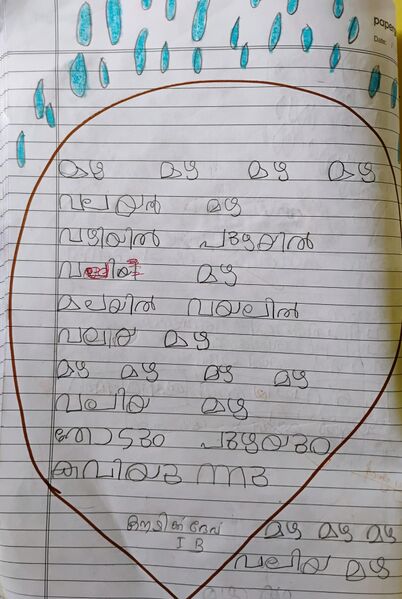 paper
Date:
മഴ മഴ മഴ മഴ
വലയൽ മഴ
വഴിയിൽ പുഴയിൽ
വലിയ മഴ
മലയിൽ വയലിൽ
വലിയ മഴ
മഴ മഴ മഴ മഴ
വലിയ മഴ
തോടും പുഴയും
കവിയുന്നു
ദേവ്
I B
മഴ മഴ മഴ
വലിയ മഴ